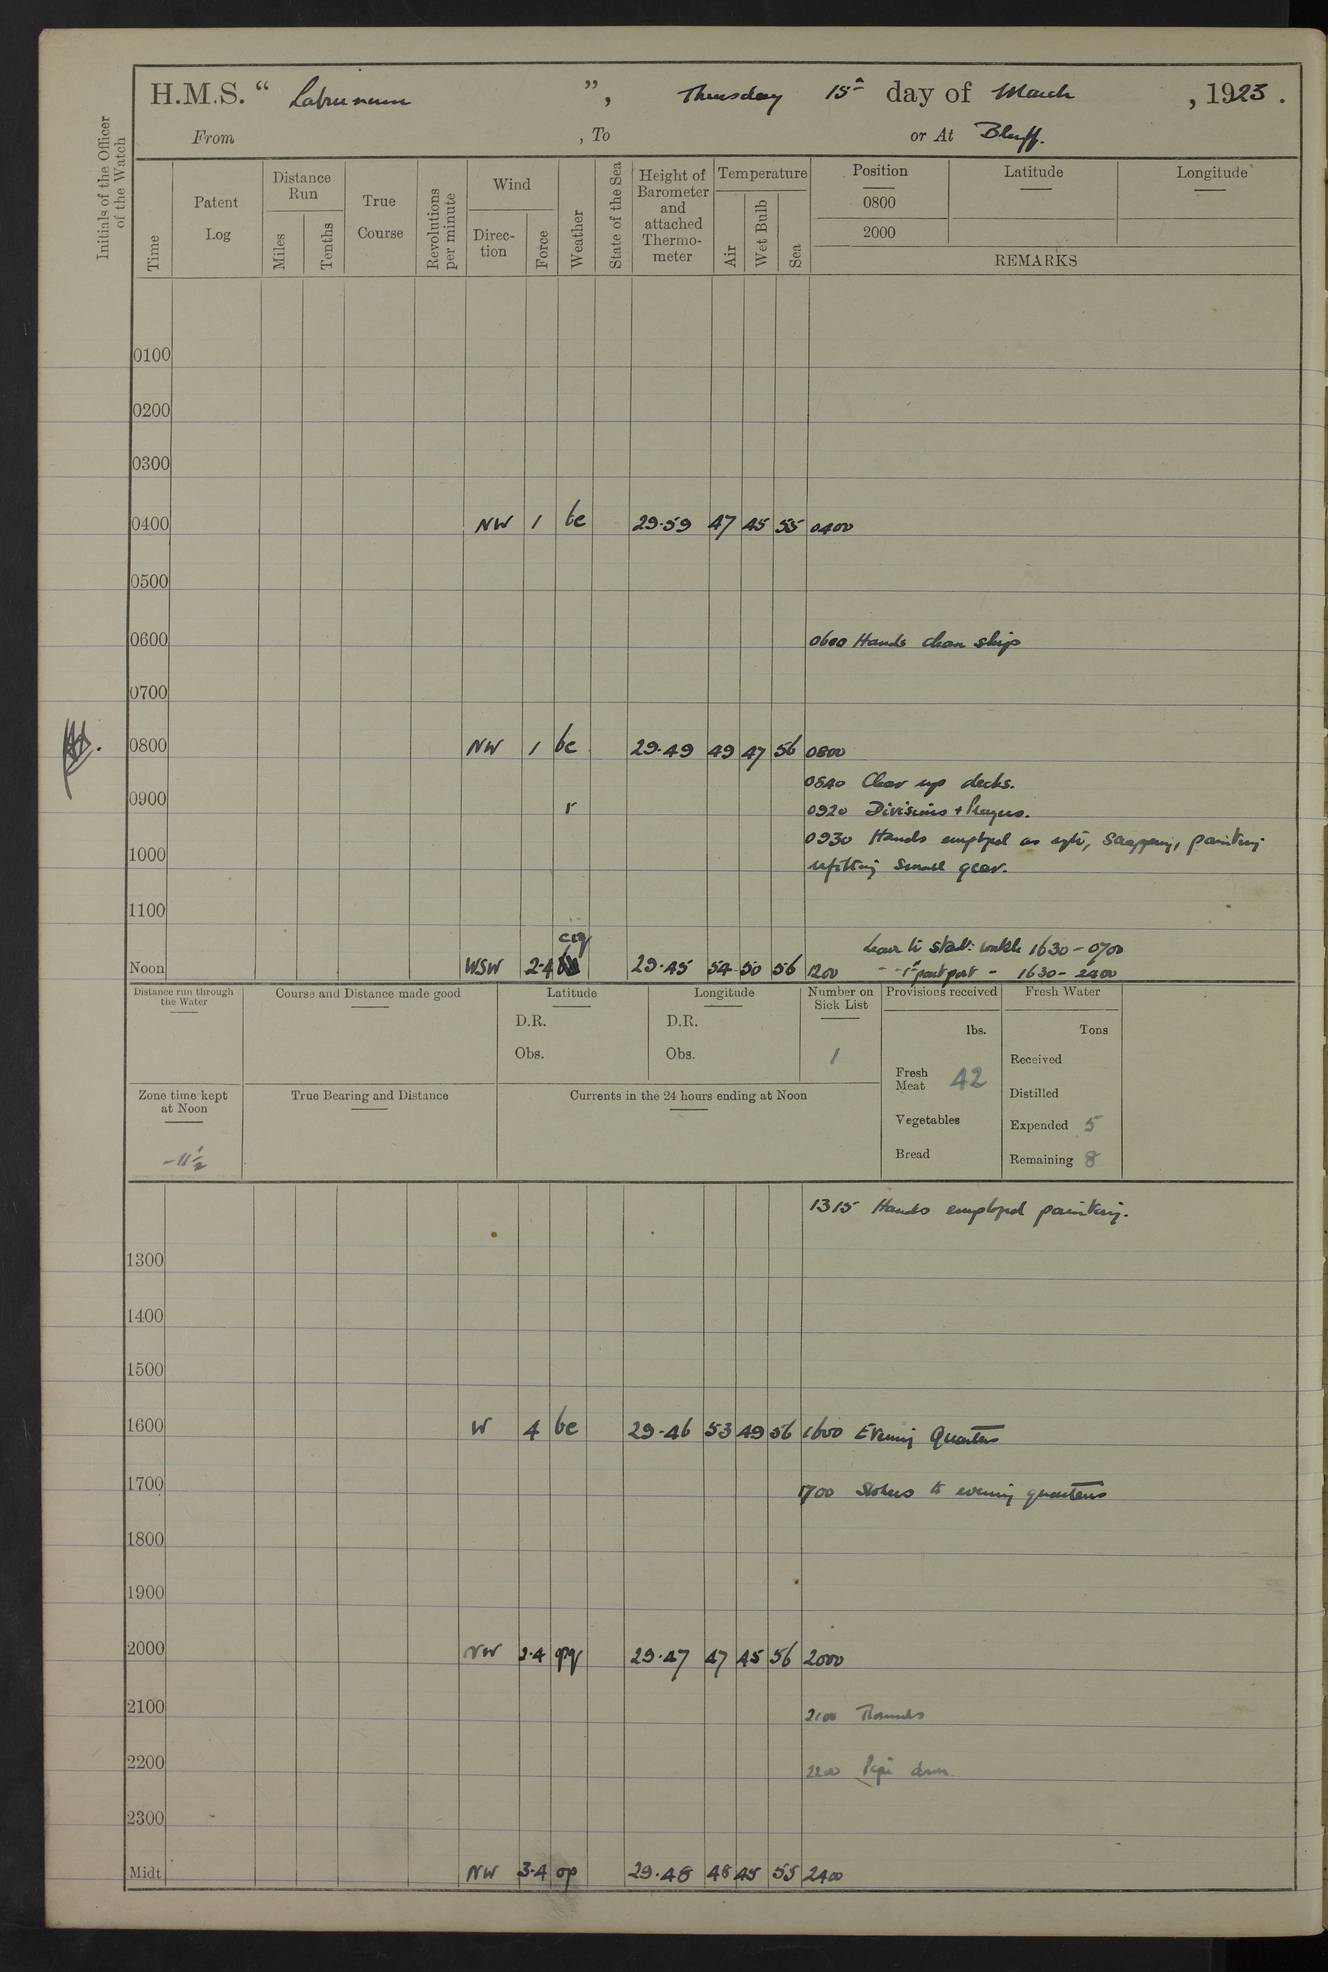 H.M.S. “ Laburnum ”, Thursday 15th day of March , 1923 .
From , To or At Bluff.
Initials of the Officer of the Watch
Time
Patent Log
Distance Run
Miles
Tenths
True Course
Revolutions per minute
Wind
Direc-tion
Force
Weather
State of the Sea
Height of Barometer and attached Thermo-meter
Temperature
Air
Wet Bulb
Sea
Position
0800
2000
Latitude
Longitude
REMARKS
0100
0200
0300
0400 NW 1 bc 29.59 47 45 55 0400
0500
0600 0600 Hands clean ship
0700
0800 NW 1 bc 29.49 49 47 56 0800
0840 Clear up decks.
0900 r 0920 Divisions + Prayers.
0930 Hands employed as reqte, Scrapping, painting
1000 refitting small gear.
1100
crq
Leave to starb: watch 1630 - 0700
Noon WSW 2-4 29.45 54 50 56 1200 - - 1st part port - 1630 - 2400
Distance run through the Water
Course and Distance made good
Latitude
D.R.
Obs.
Longitude
D.R.
Obs.
Number on Sick List
1
Provisions received
lbs.
Fresh Meat 42
Vegetables
Bread
Fresh Water
Tons
Received
Distilled
Expended 5
Remaining 8
Zone time kept at Noon
-11½
True Bearing and Distance
Currents in the 24 hours ending at Noon
1315 Hands employed painting.
1300
1400
1500
1600 W 4 bc 29.46 53 49 56 1600 Evening Quarters
1700 1700 Stokers to evening quarters
1800
1900
2000 NW 3-4 29.47 47 45 56 2000
2100 2100 Rounds
2200 2200 Pipe down
2300
Midt NW 3-4 op 29.48 48 45 55 2400